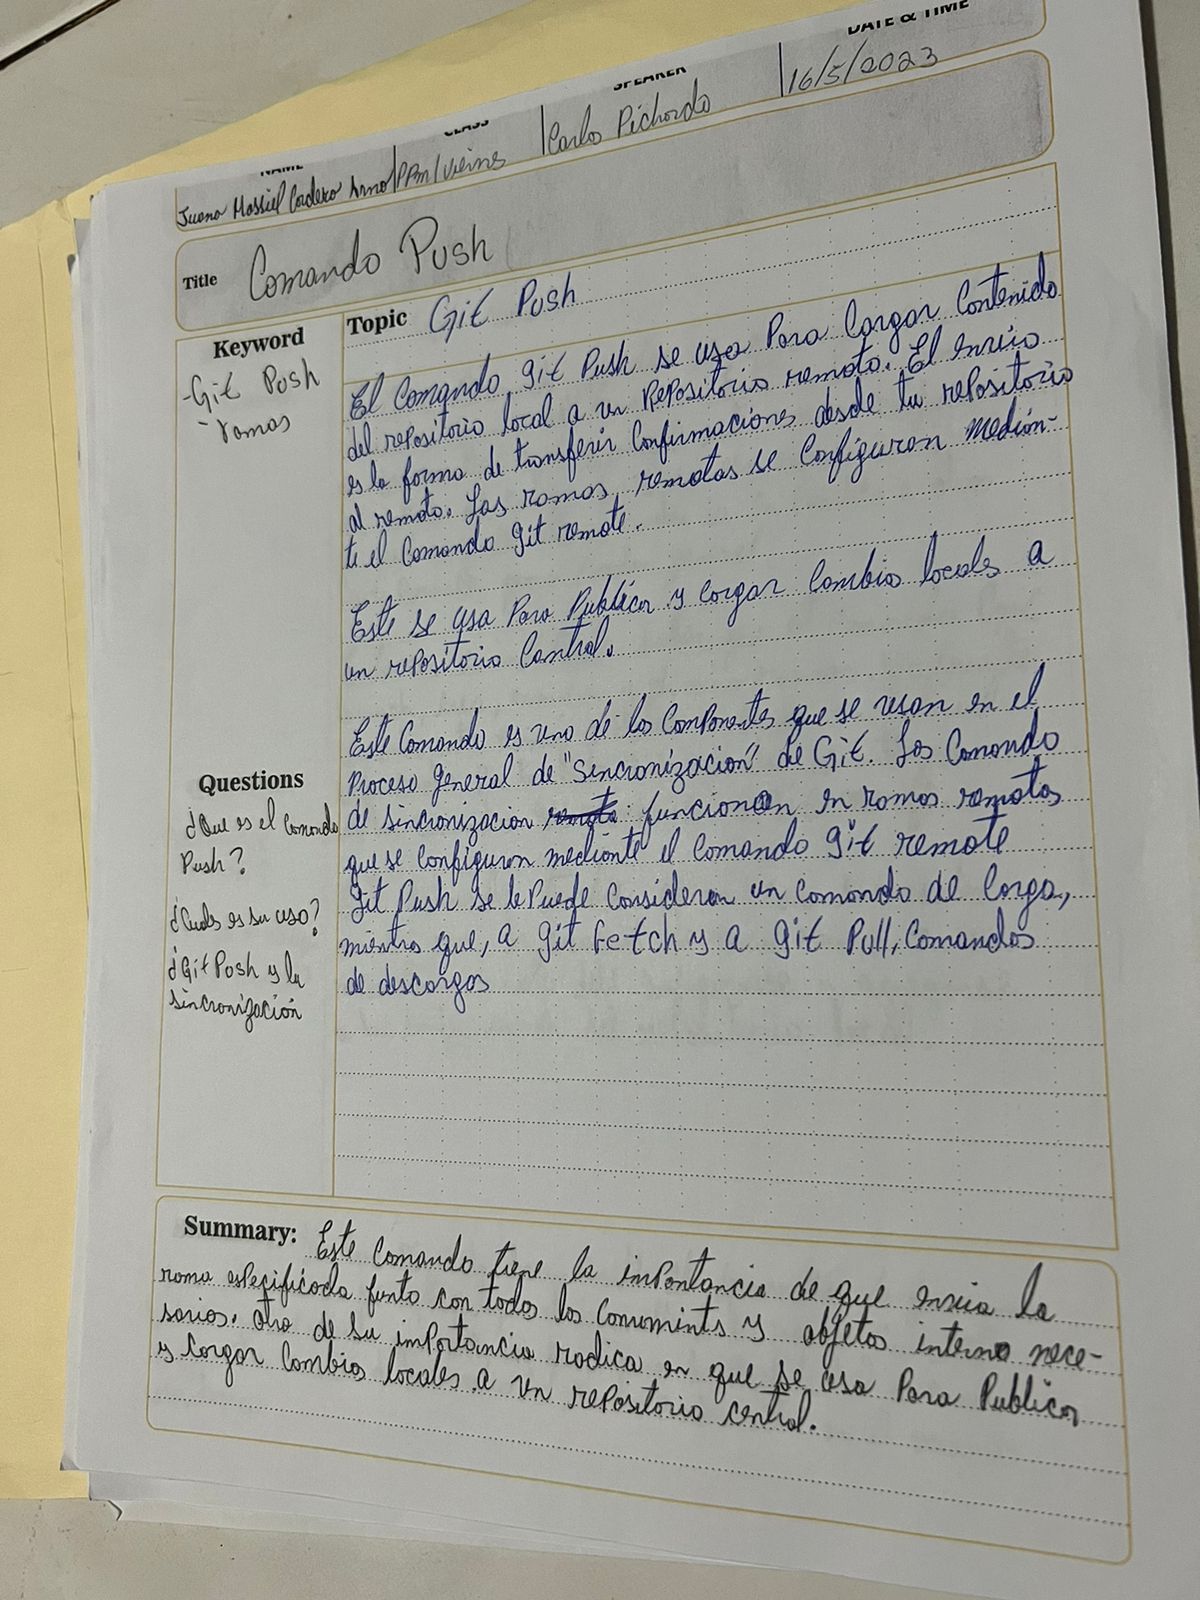 DATE & TIME
SPEAKER
CLASS
NAME
16/5/2023
Carlos Pichardo
Juana Massiel Cordero
Title Comando Push
Keyword
-Git Push
-ramas
Topic Git Push
El Comando git Push se usa Para Cargar Contenido
del repositorio local a un Repositorio remoto. El envio
es la forma de transferir Confirmaciones desde tu repositorio
al remoto. Las ramas remotas se configuran median-
te el Comando git remote.
Este se usa Para Publicar y cargar Cambios locales a
un repositorio Central.
Este Comando es uno de los Componentes que se usan en el
Proceso general de "Sincronizacion" de Git. Los Comando
de sincronizacion remota funcionan en ramas remotas
que se configuran mediante el Comando git remote
git Push se le Puede Considerar un comando de Carga,
mientra que, a git Fetch y a git Pull, Comandos
de descargas
Questions
¿Que es el Comando
Push?
¿Cuals es su uso?
¿Git Push y la
sincronización
Summary: Este Comando tiene la inportancia de que envia la
rama especificada junto con todos los Comomints y objetos interno nece-
sarios. Otra de su importancia radica en que se usa Para Publicar
y Cargar Cambios locales a un repositorio central.